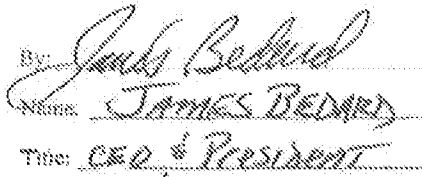 By: James Bedard
Name: JAMES BEDARD
Title: CEO & PRESIDENT